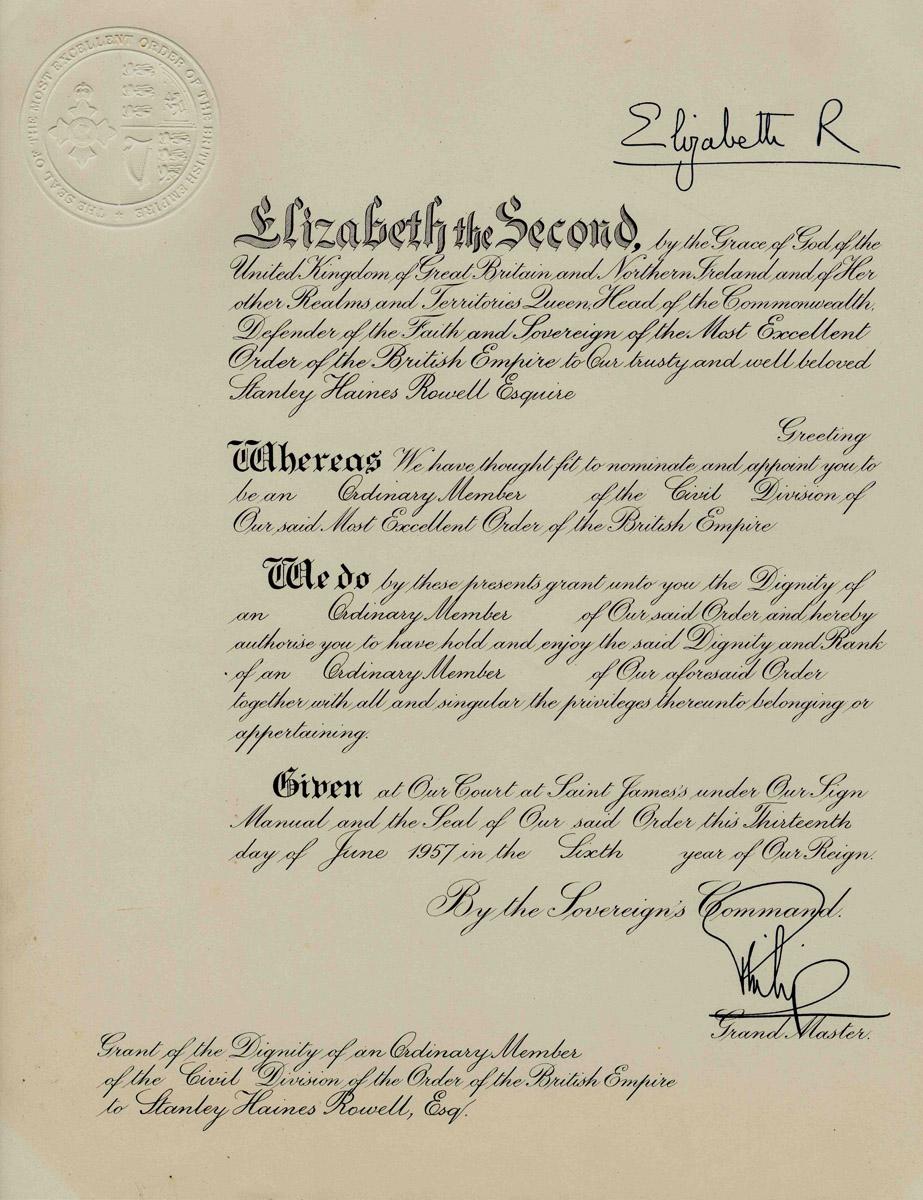 THE SEAL OF THE MOST EXCELLENT ORDER OF THE BRITISH EMPIRE
Elizabeth R
Elizabeth the Second, by the Grace of God, of the
United Kingdom of Great Britain and Northern Ireland and of Her
other Realms and Territories Queen, Head of the Commonwealth,
Defender of the Faith and Sovereign of the Most Excellent
Order of the British Empire to Our trusty and well beloved
Stanley Haines Rowell Esquire
Greeting
Whereas We have thought fit to nominate and appoint you to
be an Ordinary Member of the Civil Division of
Our said Most Excellent Order of the British Empire
We do by these presents grant unto you the Dignity of
an Ordinary Member of Our said Order and hereby
authorise you to have hold and enjoy the said Dignity and Rank
of an Ordinary Member of Our aforesaid Order
together with all and singular the privileges thereunto belonging or
appertaining.
Given at Our Court at Saint James's under Our Sign
Manual and the Seal of Our said Order this Thirteenth
day of June 1957 in the Sixth year of Our Reign.
By the Sovereign's Command.
Philip
Grand Master.
Grant of the Dignity of an Ordinary Member
of the Civil Division of the Order of the British Empire
to Stanley Haines Rowell, Esq.